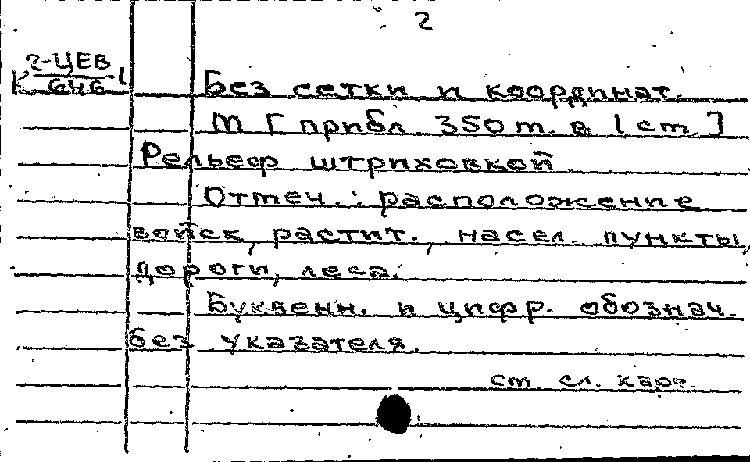 2
2-ЦЕВ
К 1
646
Без сетки и координат.
М [прибл. 350 m. в 1 cm]
Рельеф штриховкой
Отмеч.: расположение
войск, растит., насел. пункты,
дороги, леса.
Буквенн. и цифр. обознач.
без указателя.
см. сл. карт.